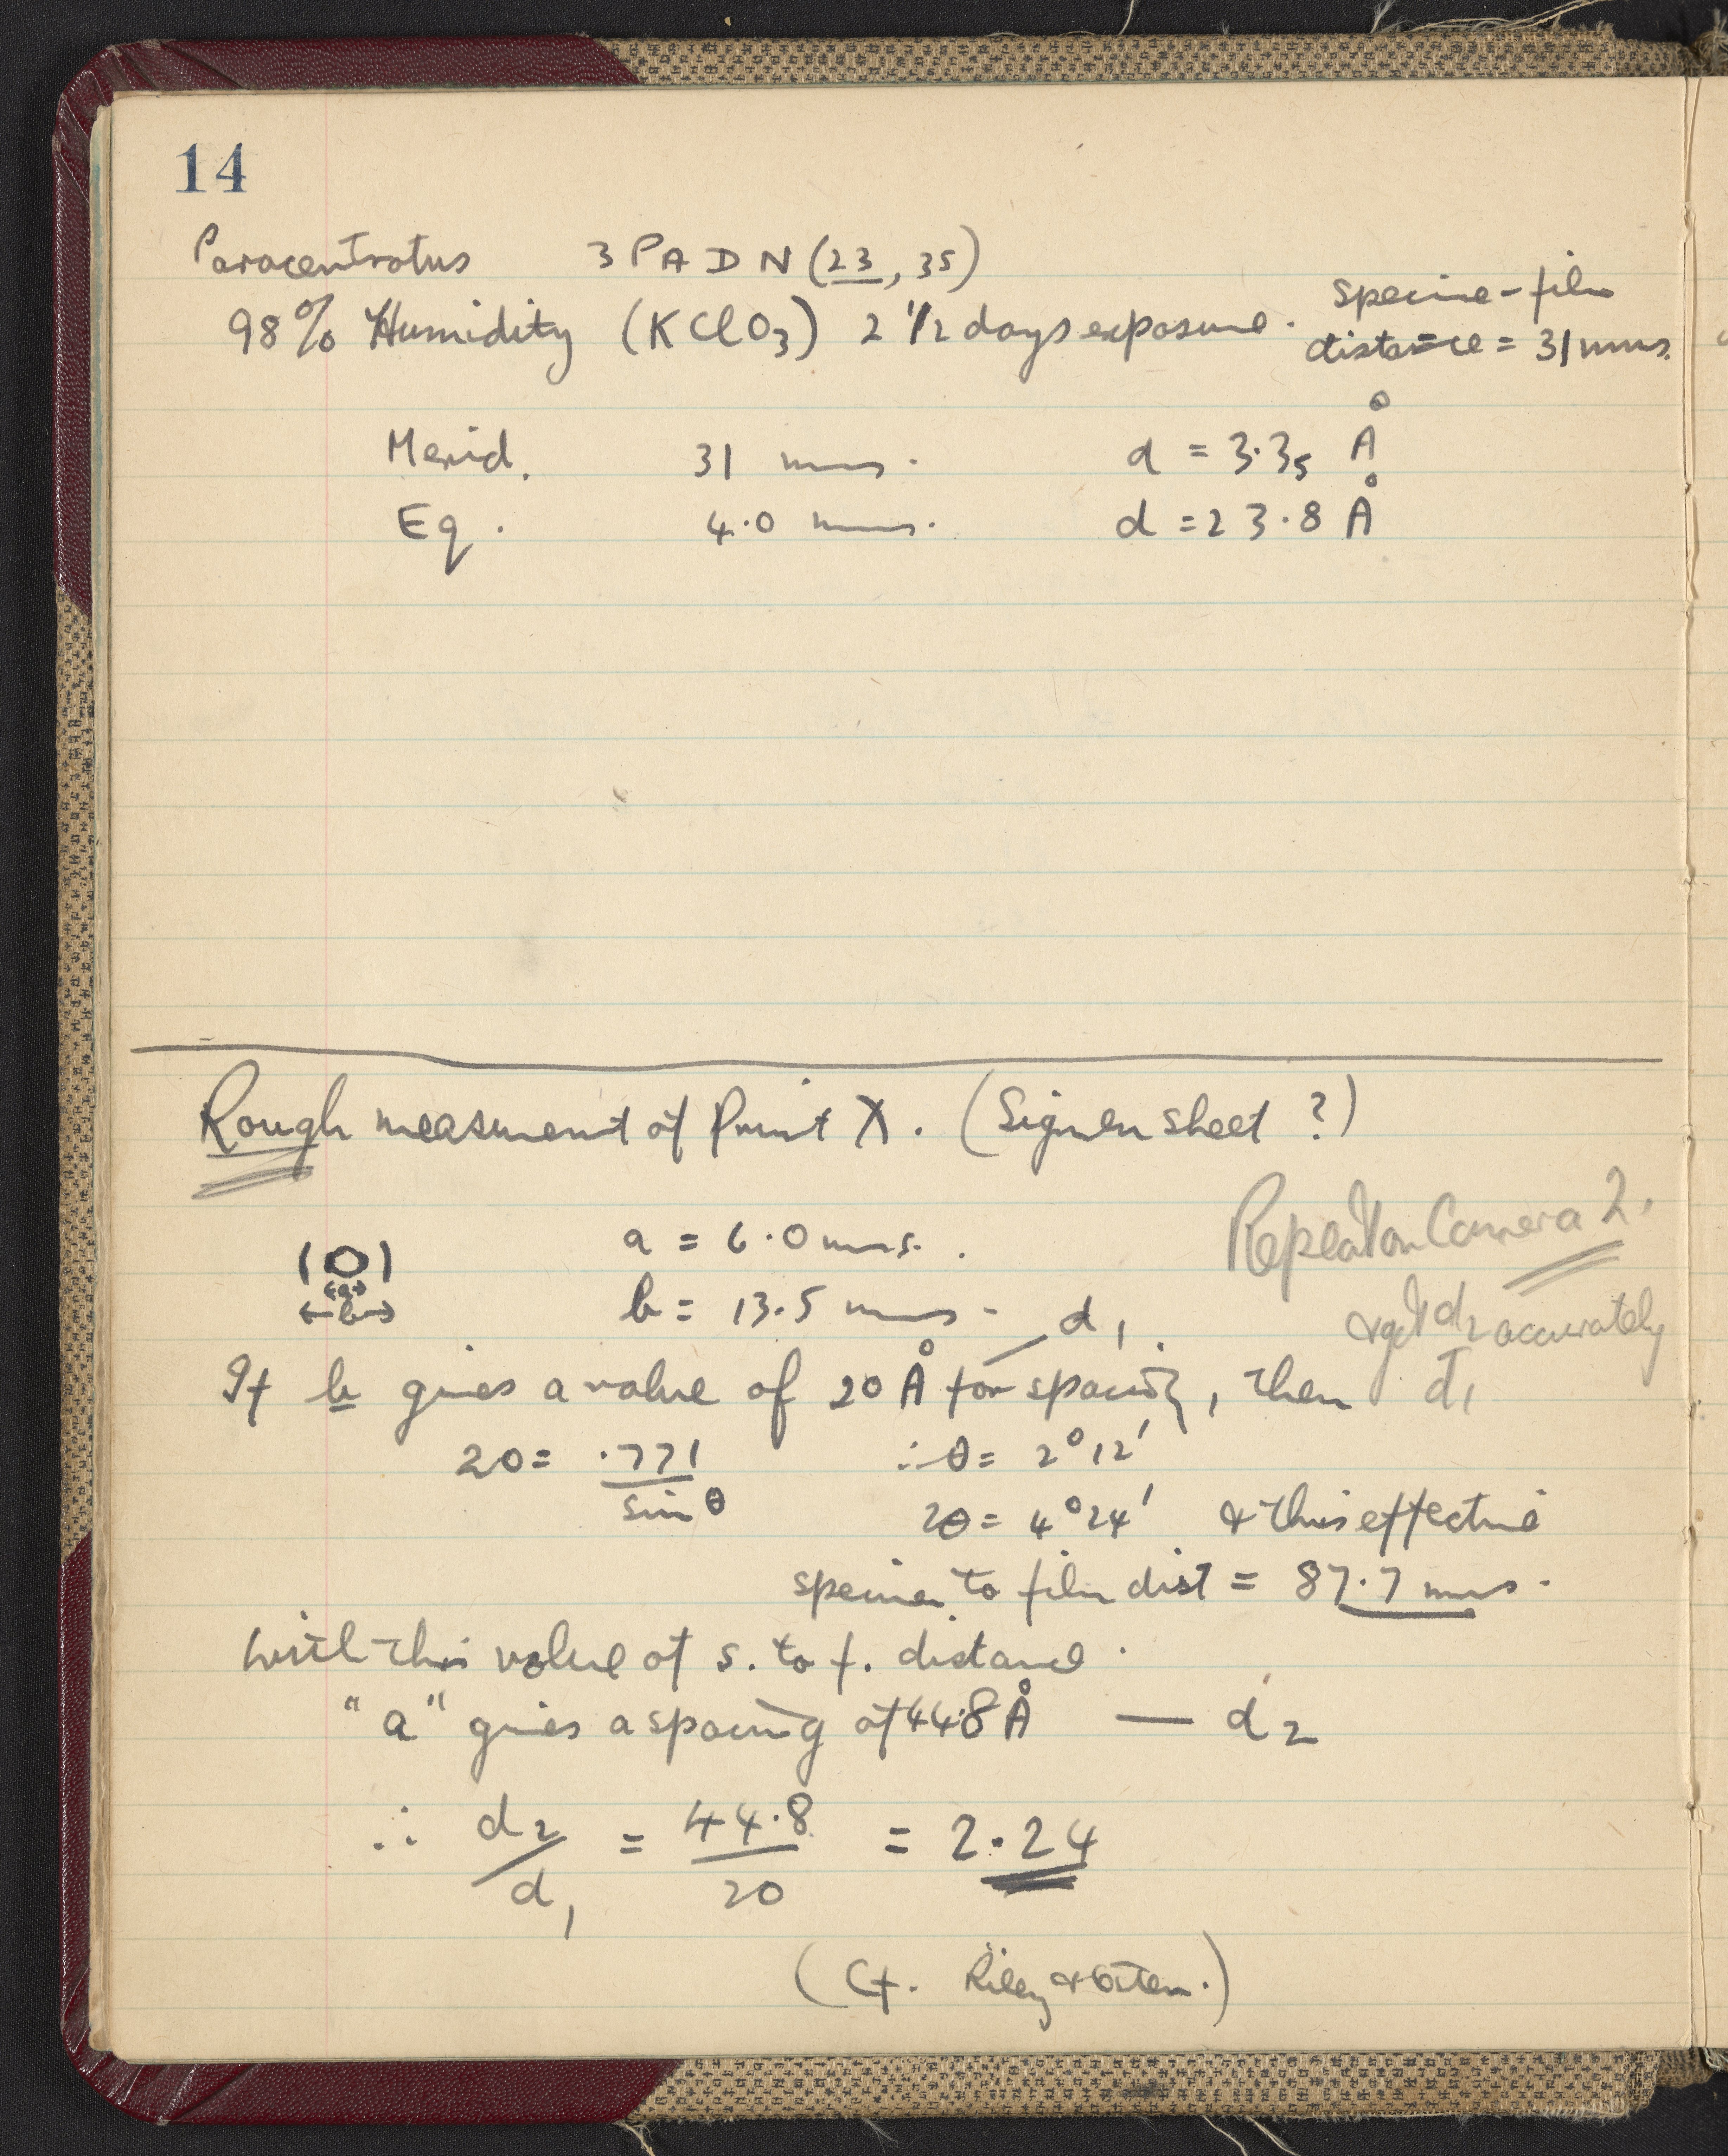 14
Paracentrotus 3 PADN (23, 35)
98% Humidity (KClO3) 2 1/2 days exposure.
specime-film
distance = 31 mms.
Merid. 31 mms. d = 3.35 Å
Eq. 4.0 mms. d = 23.8 Å
Rough measurement of Print X. (Signer sheet ?)
a = 6.0 mms.
Repeat on Camera 2.
(O)
a
b
b = 13.5 mms - d1.
& get d2 accurately
d1
If b gives a value of 20 Å for spacing, then
20 = .771 / sin θ ∴ θ = 2° 12'
2θ = 4° 24' & this effective
specimen to film dist = 87.7 mms.
With this value of s. to f. distance.
"a" gives a spacing of 44.8 Å — d2
∴ d2/d1 = 44.8/20 = 2.24
(Cf. Riley & Oster.)